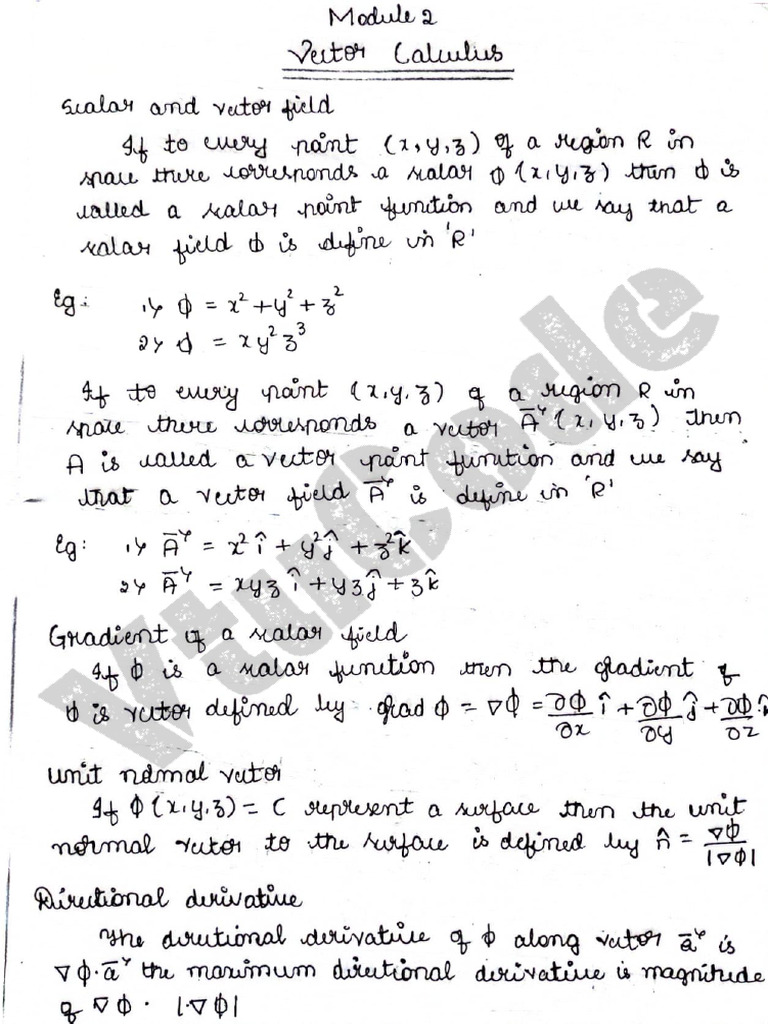 Module 2
Vector Calculus
Scalar and vector field
If to every point (x,y,z) of a region R in
space there corresponds a scalar ϕ(x,y,z) then ϕ is
called a scalar point function and we say that a
scalar field ϕ is define in 'R'
Eg: 1> ϕ = x² + y² + z²
2> ϕ = xy²z³
If to every point (x,y,z) of a region R in
space there corresponds a vector A⃗(x,y,z) then
A is called a vector point function and we say
that a vector field A⃗ is define in 'R'
Eg: 1> A⃗ = x²î + y²ĵ + z²k̂
2> A⃗ = xyzî + yzĵ + zk̂
Gradient of a scalar field
If ϕ is a scalar function then the gradient of
ϕ is vector defined by grad ϕ = ∇ϕ = ∂ϕ/∂x î + ∂ϕ/∂y ĵ + ∂ϕ/∂z k̂
Unit normal vector
If ϕ(x,y,z) = C represent a surface then the unit
normal vector to the surface is defined by n̂ = ∇ϕ/|∇ϕ|
Directional derivative
The directional derivative of ϕ along vector a⃗ is
∇ϕ·a⃗ the maximum directional derivative is magnitude
of ∇ϕ. |∇ϕ|
VtuCode